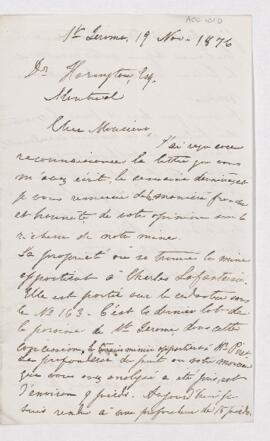 ACC 1010
St. Jerome, 19 Nov. 1876
Dr Harington, Esq.
Montreal
Cher Monsieur,
J'ai reçu avec
reconnaissance la lettre que vous
m'avez écrit, la semaine dernière, et
je vous remercie de la manière franche
et honnête de votre opinion sur la
richesse de notre mine.
La propriété où se trouve la mine
appartient à Charles Lafontaine.
Elle est portée sur le cadastre sous
le No 163. C'est le dernier lot de
la paroisse de St. Jerome, dans cette
concession, le terrain voisin appartient à
La profondeur du puit où votre morceau
que vous avez analysé a été pris, est
d'environ 9 pieds. Aujourd'hui je
suis rendu à une profondeur de 15 pieds.